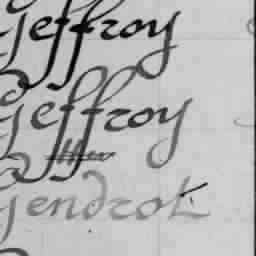 Geffroy
Geffroy
Gendrot